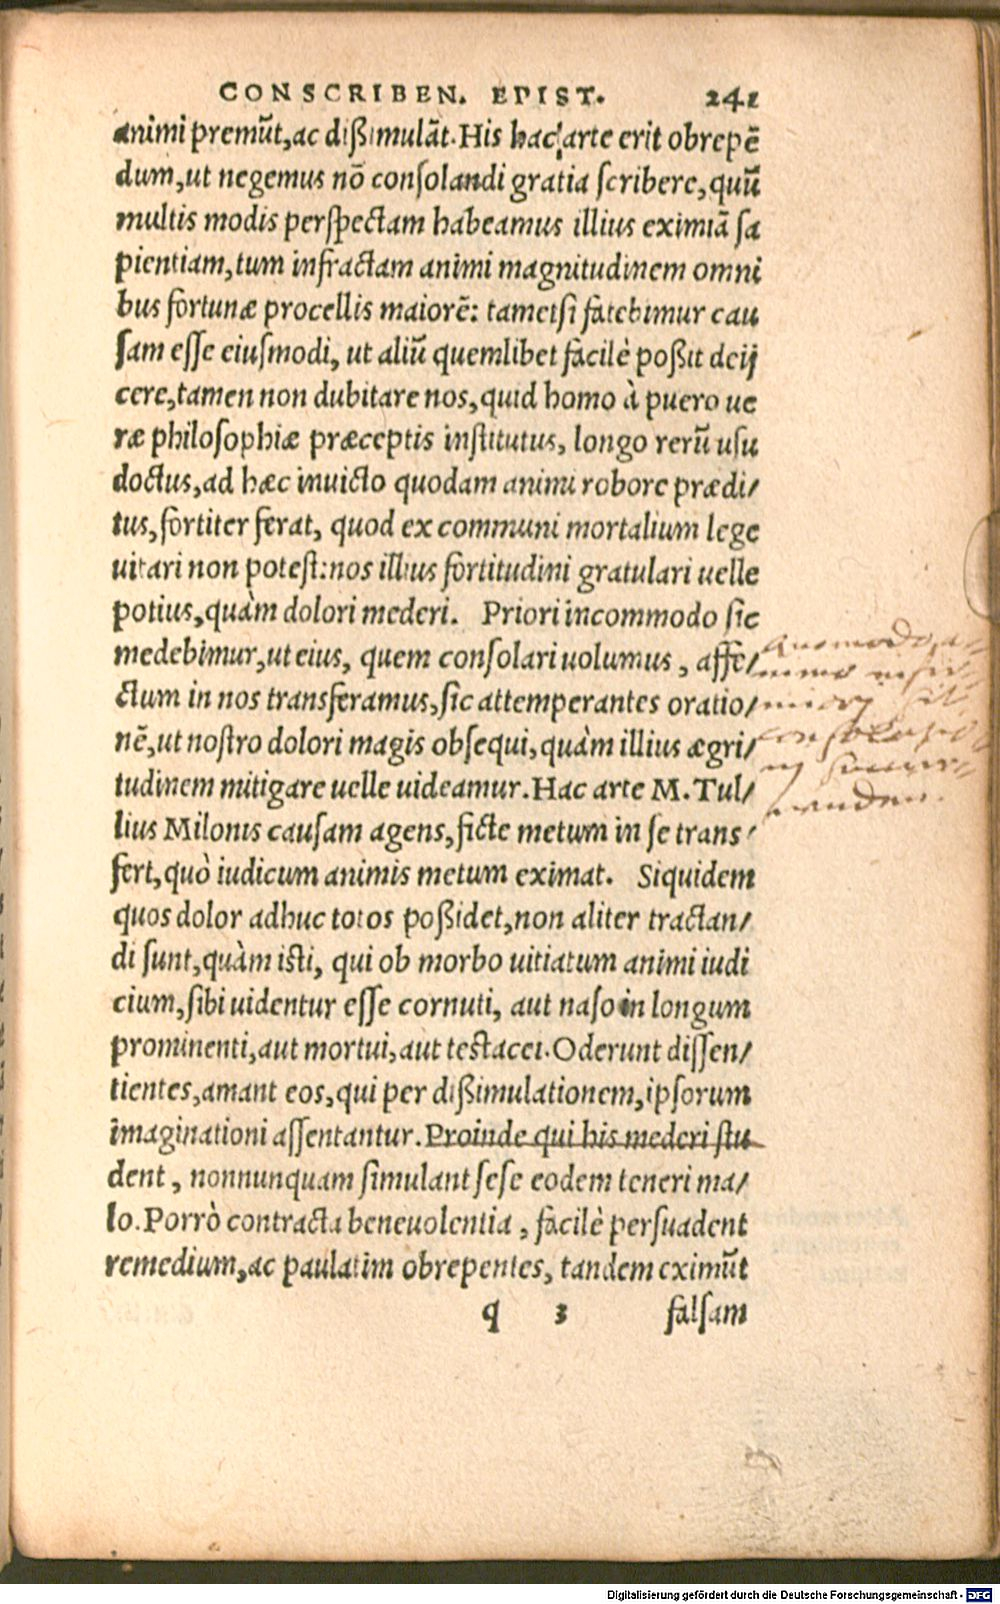 CONSCRIBEN. EPIST. 241
animi premũt, ac dißimulãt. His hac arte erit obrepẽ
dum, ut negemus nõ consolandi gratia scribere, quũ
multis modis perspectam habeamus illius eximiã sa
pientiam, tum infractam animi magnitudinem omni
bus fortunæ procellis maiorẽ: tametsi fatebimur cau
sam esse eiusmodi, ut aliũ quemlibet facilè poßit deij
cere, tamen non dubitare nos, quid homo à puero ue
ræ philosophiæ præceptis institutus, longo rerũ usu
doctus, ad hæc inuicto quodam animi robore prædi/
tus, fortiter ferat, quod ex communi mortalium lege
uitari non potest: nos illius fortitudini gratulari uelle
potius, quàm dolori mederi. Priori incommodo sic
medebimur, ut eius, quem consolari uolumus, affe/
ctum in nos transferamus, sic attemperantes oratio/
nẽ, ut nostro dolori magis obsequi, quàm illius ægri/
tudinem mitigare uelle uideamur. Hac arte M. Tul/
lius Milonis causam agens, ficte metum in se trans/
fert, quò iudicum animis metum eximat. Siquidem
quos dolor adhuc totos poßidet, non aliter tractan/
di sunt, quàm isti, qui ob morbo uitiatum animi iudi
cium, sibi uidentur esse cornuti, aut naso in longum
prominenti, aut mortui, aut testacei. Oderunt dissen/
tientes, amant eos, qui per dißimulationem, ipsorum
imaginationi assentantur. Proinde qui his mederi stu
dent, nonnunquam simulant sese eodem teneri ma/
lo. Porrò contracta beneuolentia, facilè persuadent
remedium, ac paulatim obrepentes, tandem eximũt
q 3 falsam
Quomodo a-
Digitalisierung gefördert durch die Deutsche Forschungsgemeinschaft - DFG